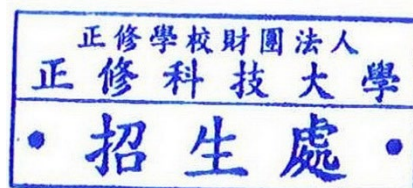 正修學校財團法人
正修科技大學
•招生處•